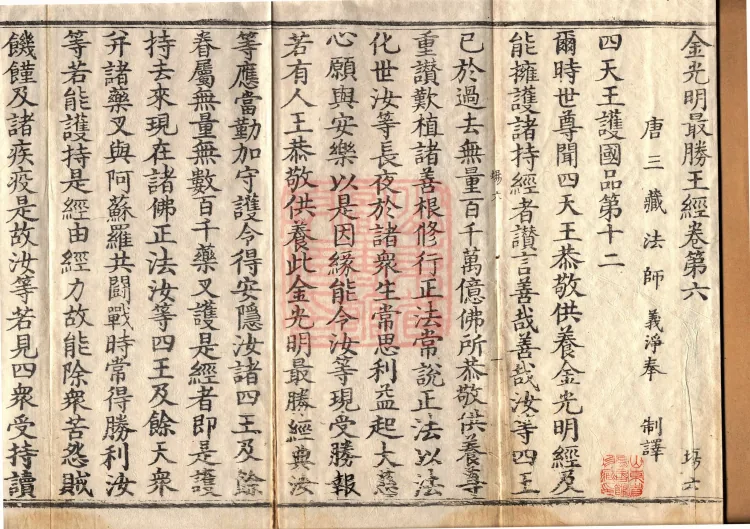 金光明最勝王經卷第六 場六
唐三藏法師義淨奉 制譯
四天王護國品第十二
爾時世尊聞四天王恭敬供養金光明經及
能擁護諸持經者讚言善哉善哉汝等四王
已於過去無量百千萬億佛所恭敬供養尊
重讚歎植諸善根修行正法常說正法以法
化世汝等長夜於諸衆生常思利益起大慈
心願與安樂以是因緣能令汝等現受勝報
若有人王恭敬供養此金光明最勝經典汝
等應當勤加守護令得安隱汝諸四王及餘
眷屬無量無數百千藥叉護是經者即是護
持去來現在諸佛正法汝等四王及餘天衆
并諸藥叉與阿蘇羅共鬪戰時常得勝利汝
等若能護持是經由經力故能除衆苦怨賊
饑饉及諸疾疫是故汝等若見四衆受持讀